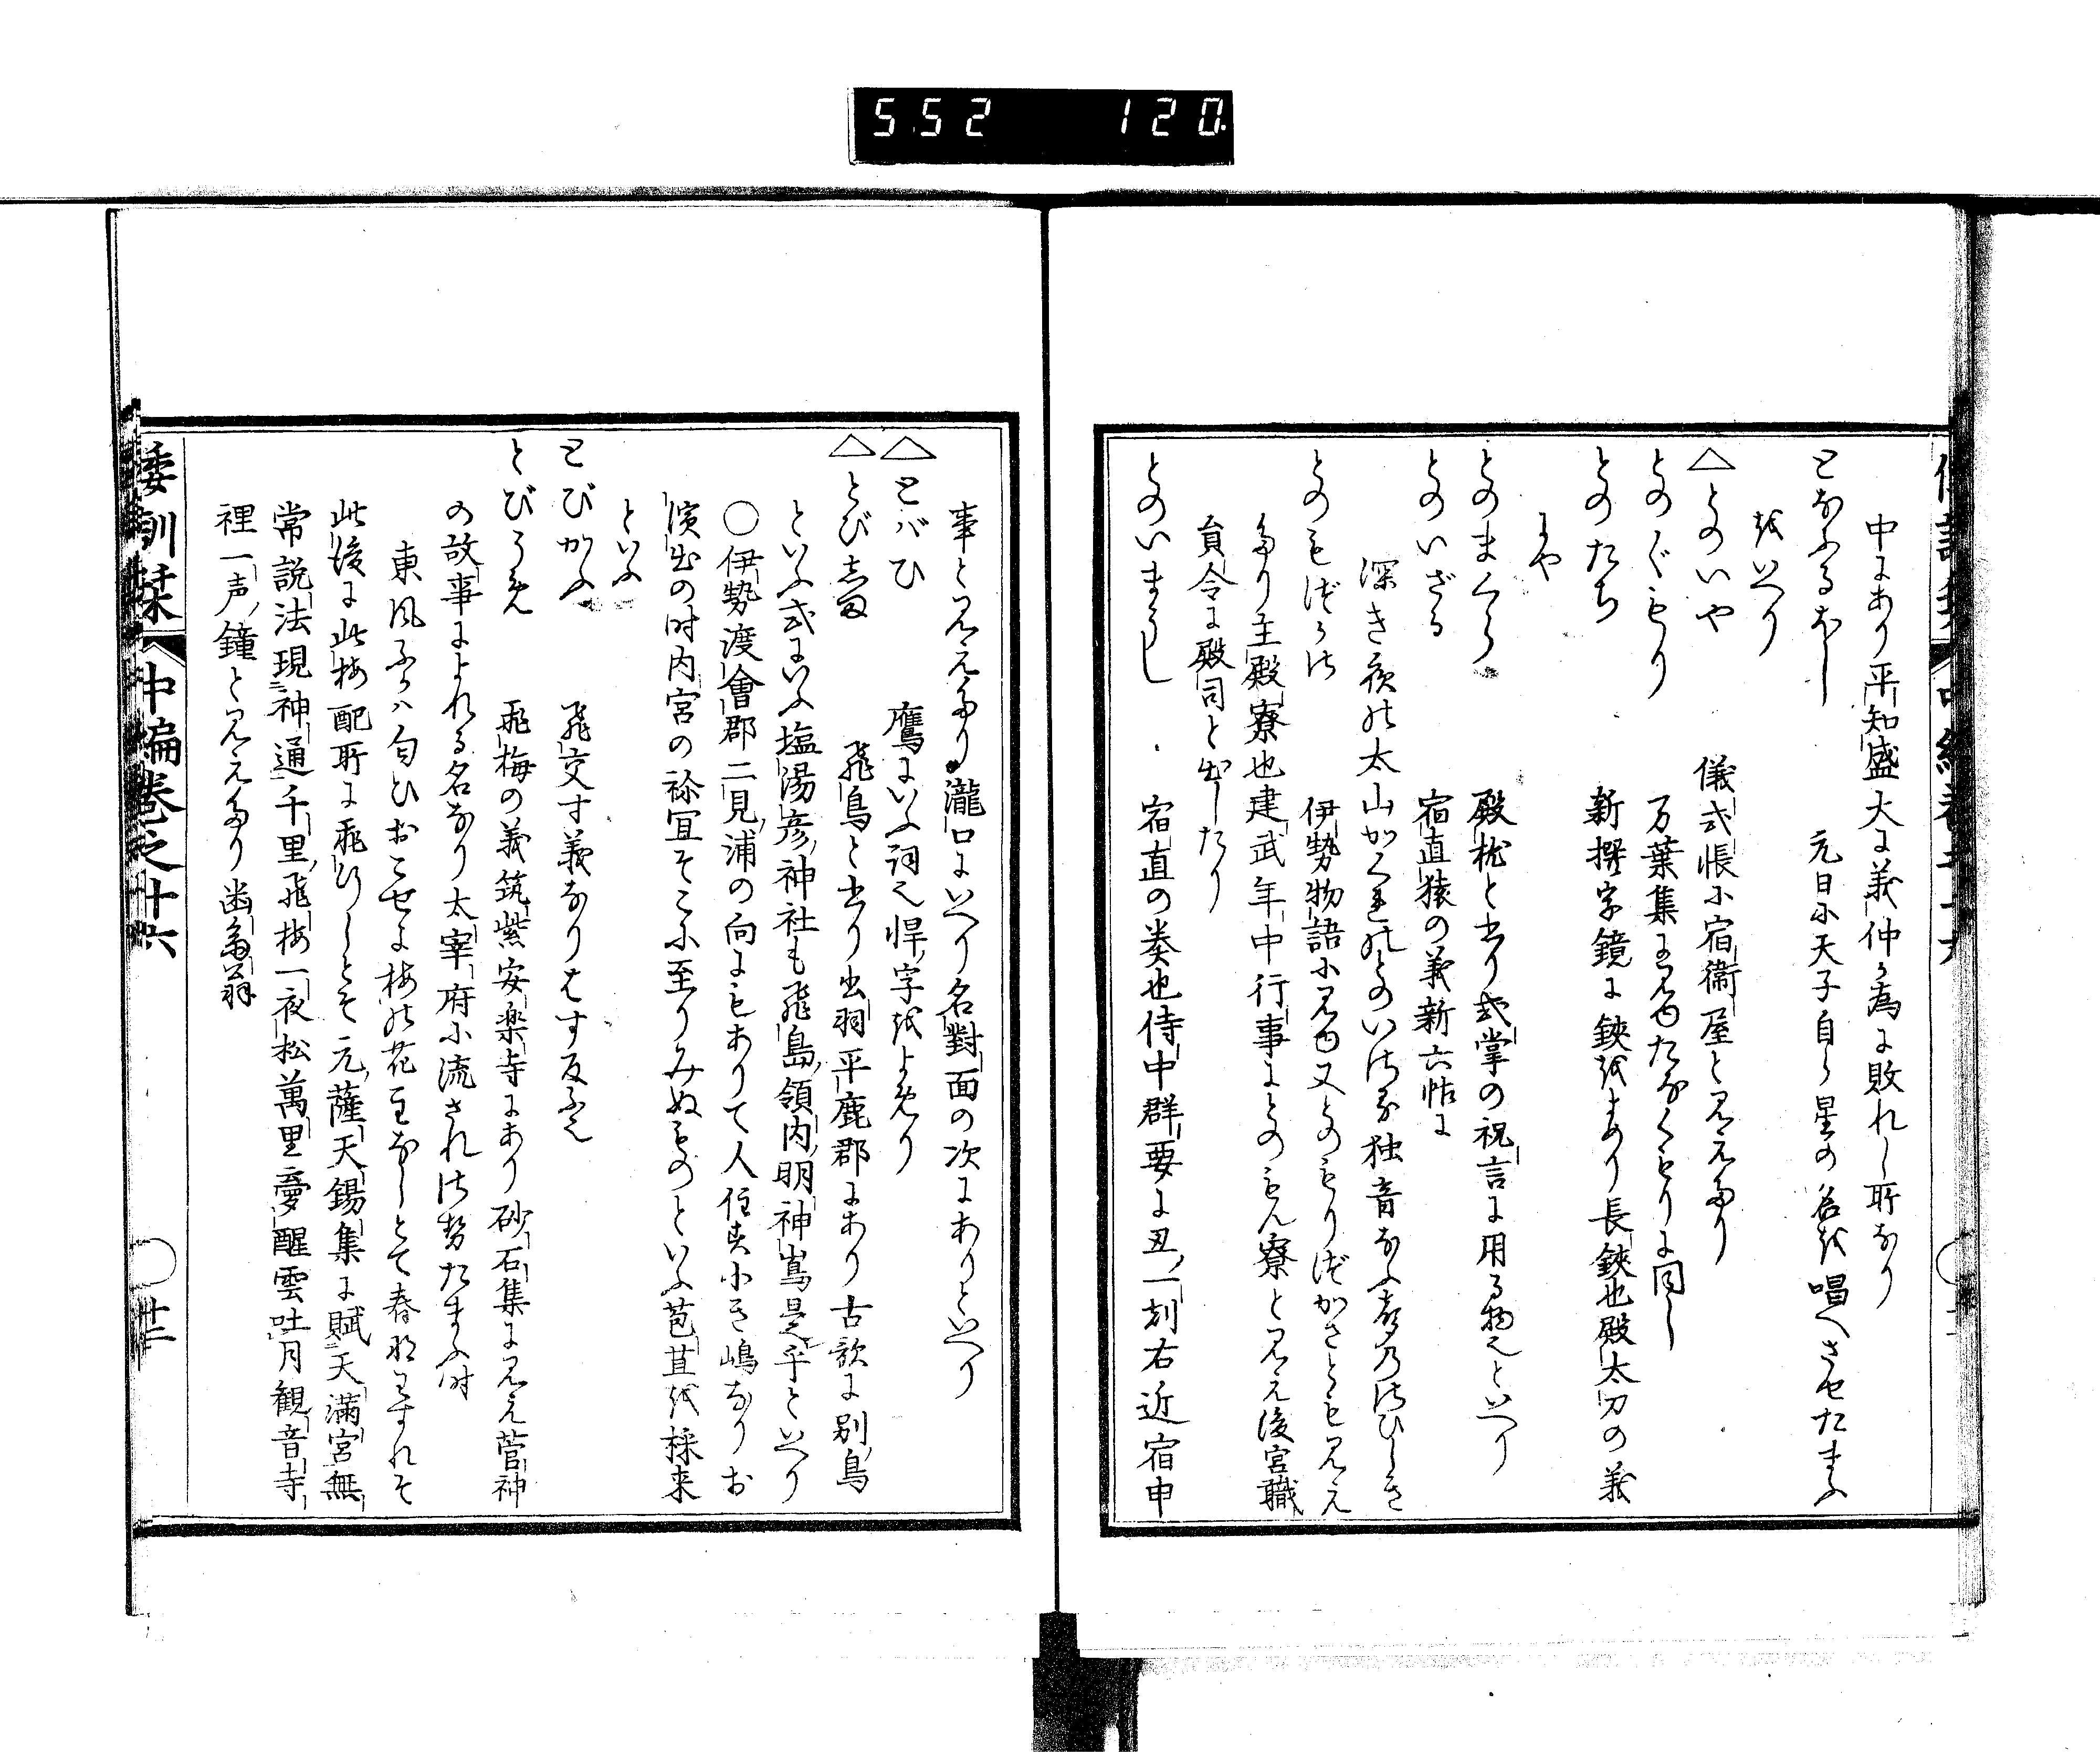 5.52 120.
中にあり平知盛大に義仲が為に敗れし所なり
となふるほし 元日に天子自ら星の名を唱へさせたまふ
をいへり
△とのいや 儀式帳に宿衛屋と見えたり
とのぐもり 万葉集に見ゆたなぐもりに同し
とのたち 新撰字鏡に鋏をよめり長鋏也殿太刀の義
にや
とのまくら 殿枕と書り式掌の祝言に用る物也といへり
とのいざる 宿直猿の義新六帖に
深き夜の太山がくれのとのいざる独音なふ声のさひしさ
とのもづかさ 伊勢物語に見ゆ又とのもりづかさとも見え
たり主殿寮也建武年中行事にとのもん寮と見え後宮職
員令に殿司と出したり
とのいまうし 宿直の奏也侍中群要に丑一刻右近宿申
事と見えたり瀧口にいへり名對面の次にありといへり
△とばひ 鷹にいふ詞也悍字をよめり
△とびしま 飛島と書り出羽平鹿郡にあり古歌に別島
といふ式にいふ塩湯彦神社も飛島領内明神嶌是乎といへり
○伊勢渡會郡二見浦の向にもありて人住ぬ小き嶋なりお
濱出の時内宮の祢宜そこに至りみぬものといふ苞苴を採来
といふ
とびかふ 飛交す義なりはす反ふ也
とびうめ 飛梅の義筑紫安楽寺にあり砂石集に見え菅神
の故事によれる名なり太宰府に流されさせたまふ時
東風ふかは匂ひおこせよ梅の花主なしとて春なわすれそ
此後に此梅配所に飛行しとそ元薩天錫集に賦天満宮無
常説法現神通千里飛梅一夜松萬里夢醒雲吐月観音寺
裡一声鐘と見えたり
倭訓栞 中編巻之十六 ○ 廿二